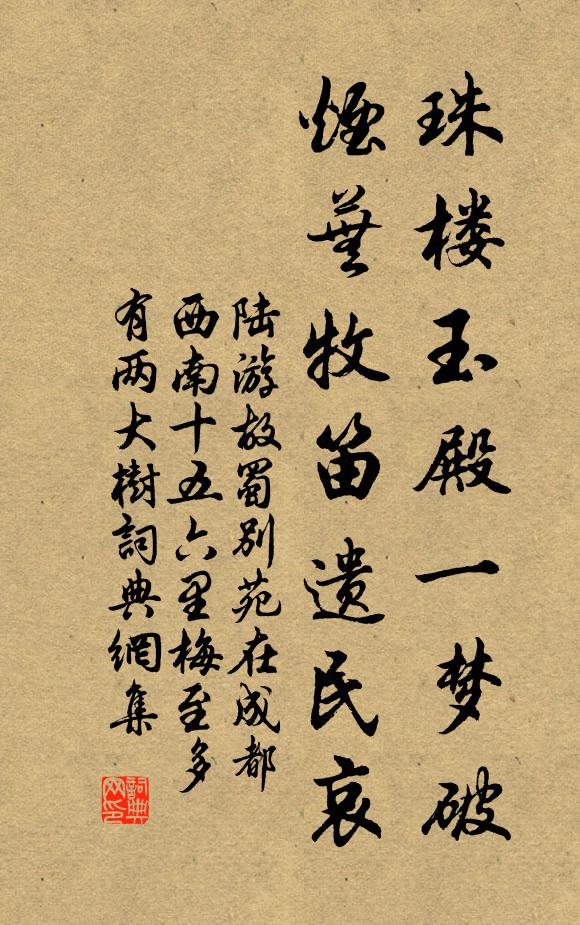 珠楼玉殿一梦破
烟芜牧笛遗民哀
陆游故蜀别苑在成都
西南十五六里梅至多
有两大樹詞典網集
詞典网印